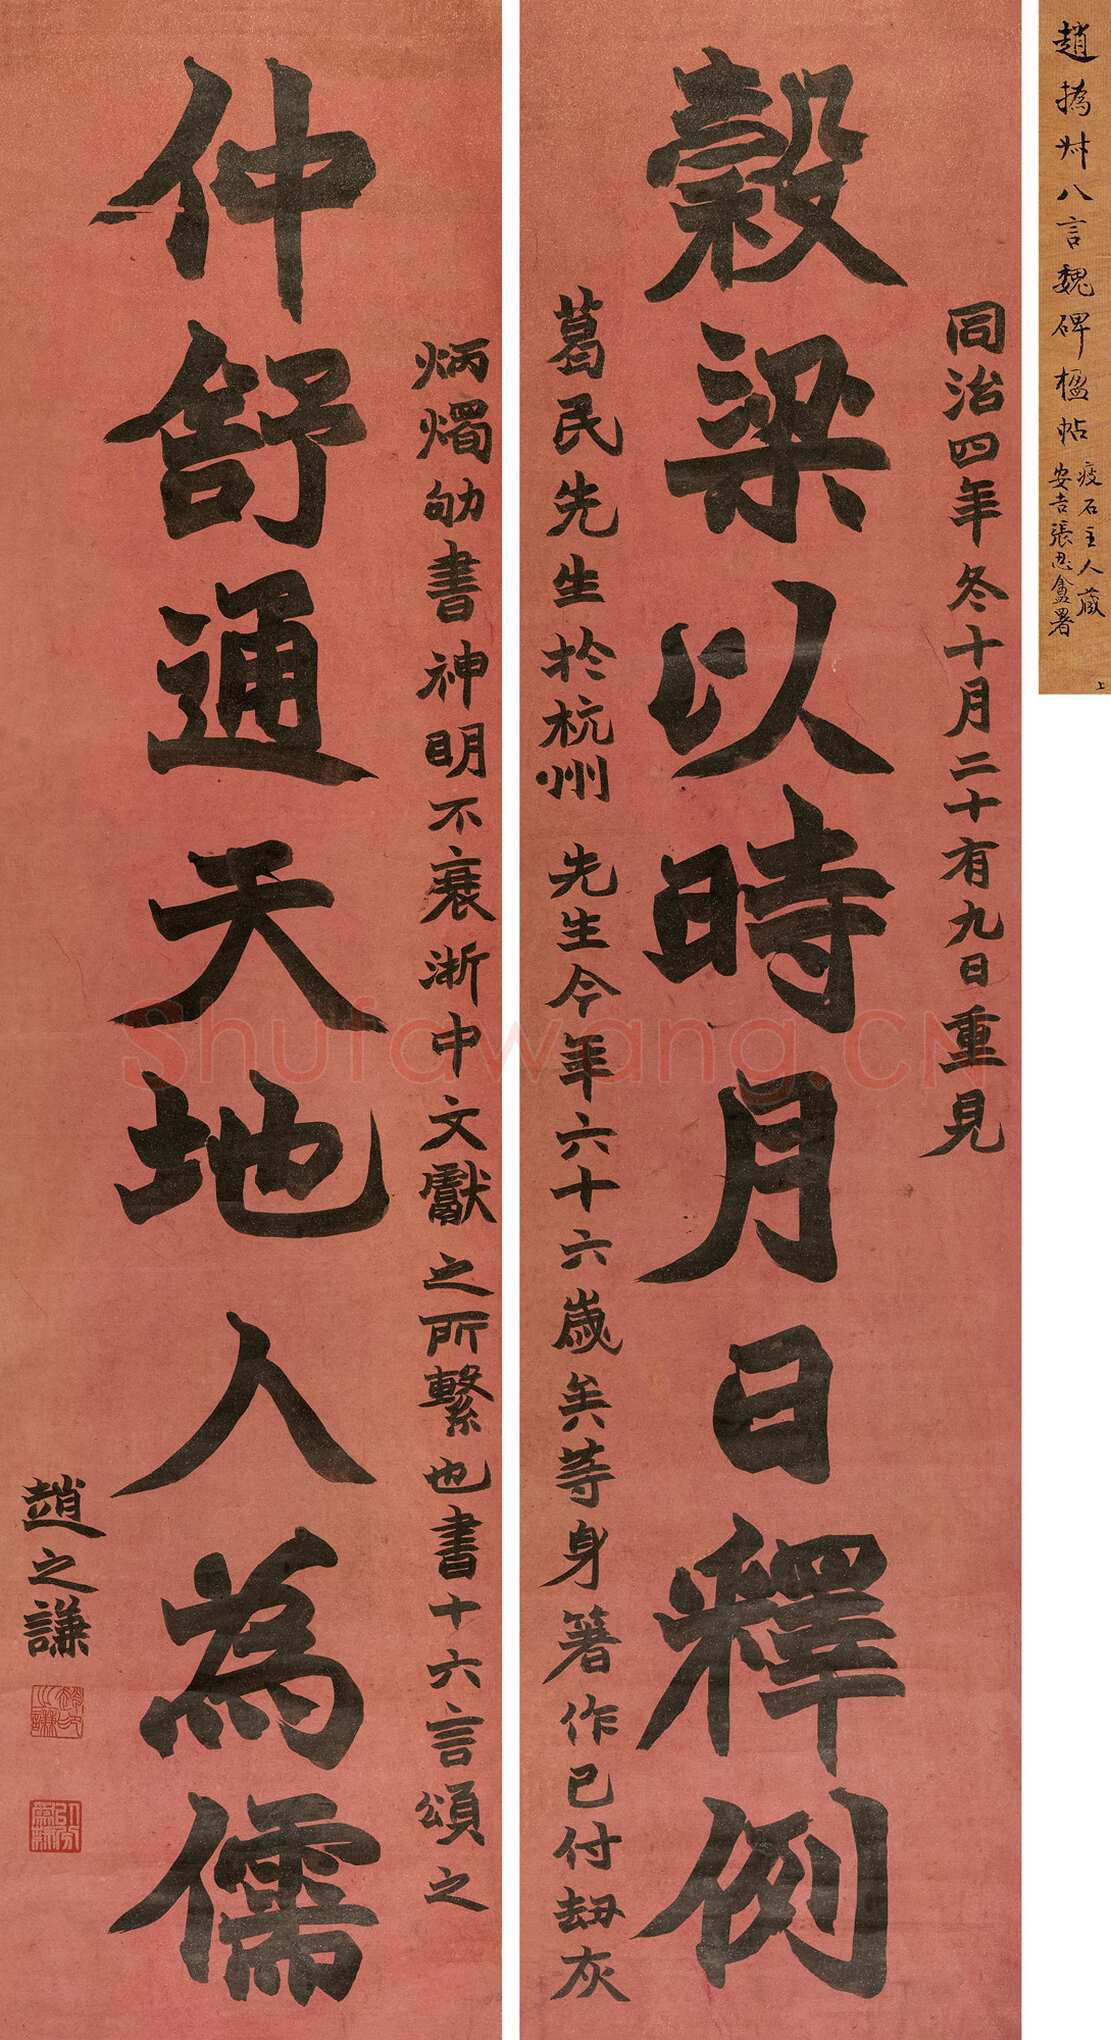 趙撝叔八言魏碑楹帖
疲石主人藏
安吉張忍盦署
上
同治四年冬十月二十有九日重見
穀梁以時月日釋例
葛民先生於杭州 先生今年六十六歲矣等身箸作已付劫灰
炳燭劬書神明不衰浙中文獻之所繫也書十六言頌之
仲舒通天地人為儒
趙之謙
Shufawang.CN